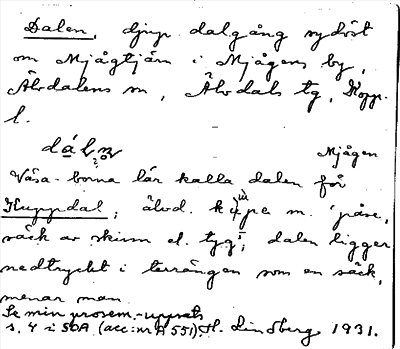 Dalen, djup dalgång sydöst
om Mjågtjärn i Mjågens by,
Älvdalens sn, Älvdals tg, Kopp.
l.
Mjågen
Våsa-borna lär kalla dalen för
Kuppdal; älvd. m. 'påse,
säck av skinn el. tyg'; dalen ligger
nedtryckt i terrängen som en säck,
menar man.
Se min prosem.-uppsats
s. 4 i SOA (acc: nr A 551). H. Lindberg 1931.